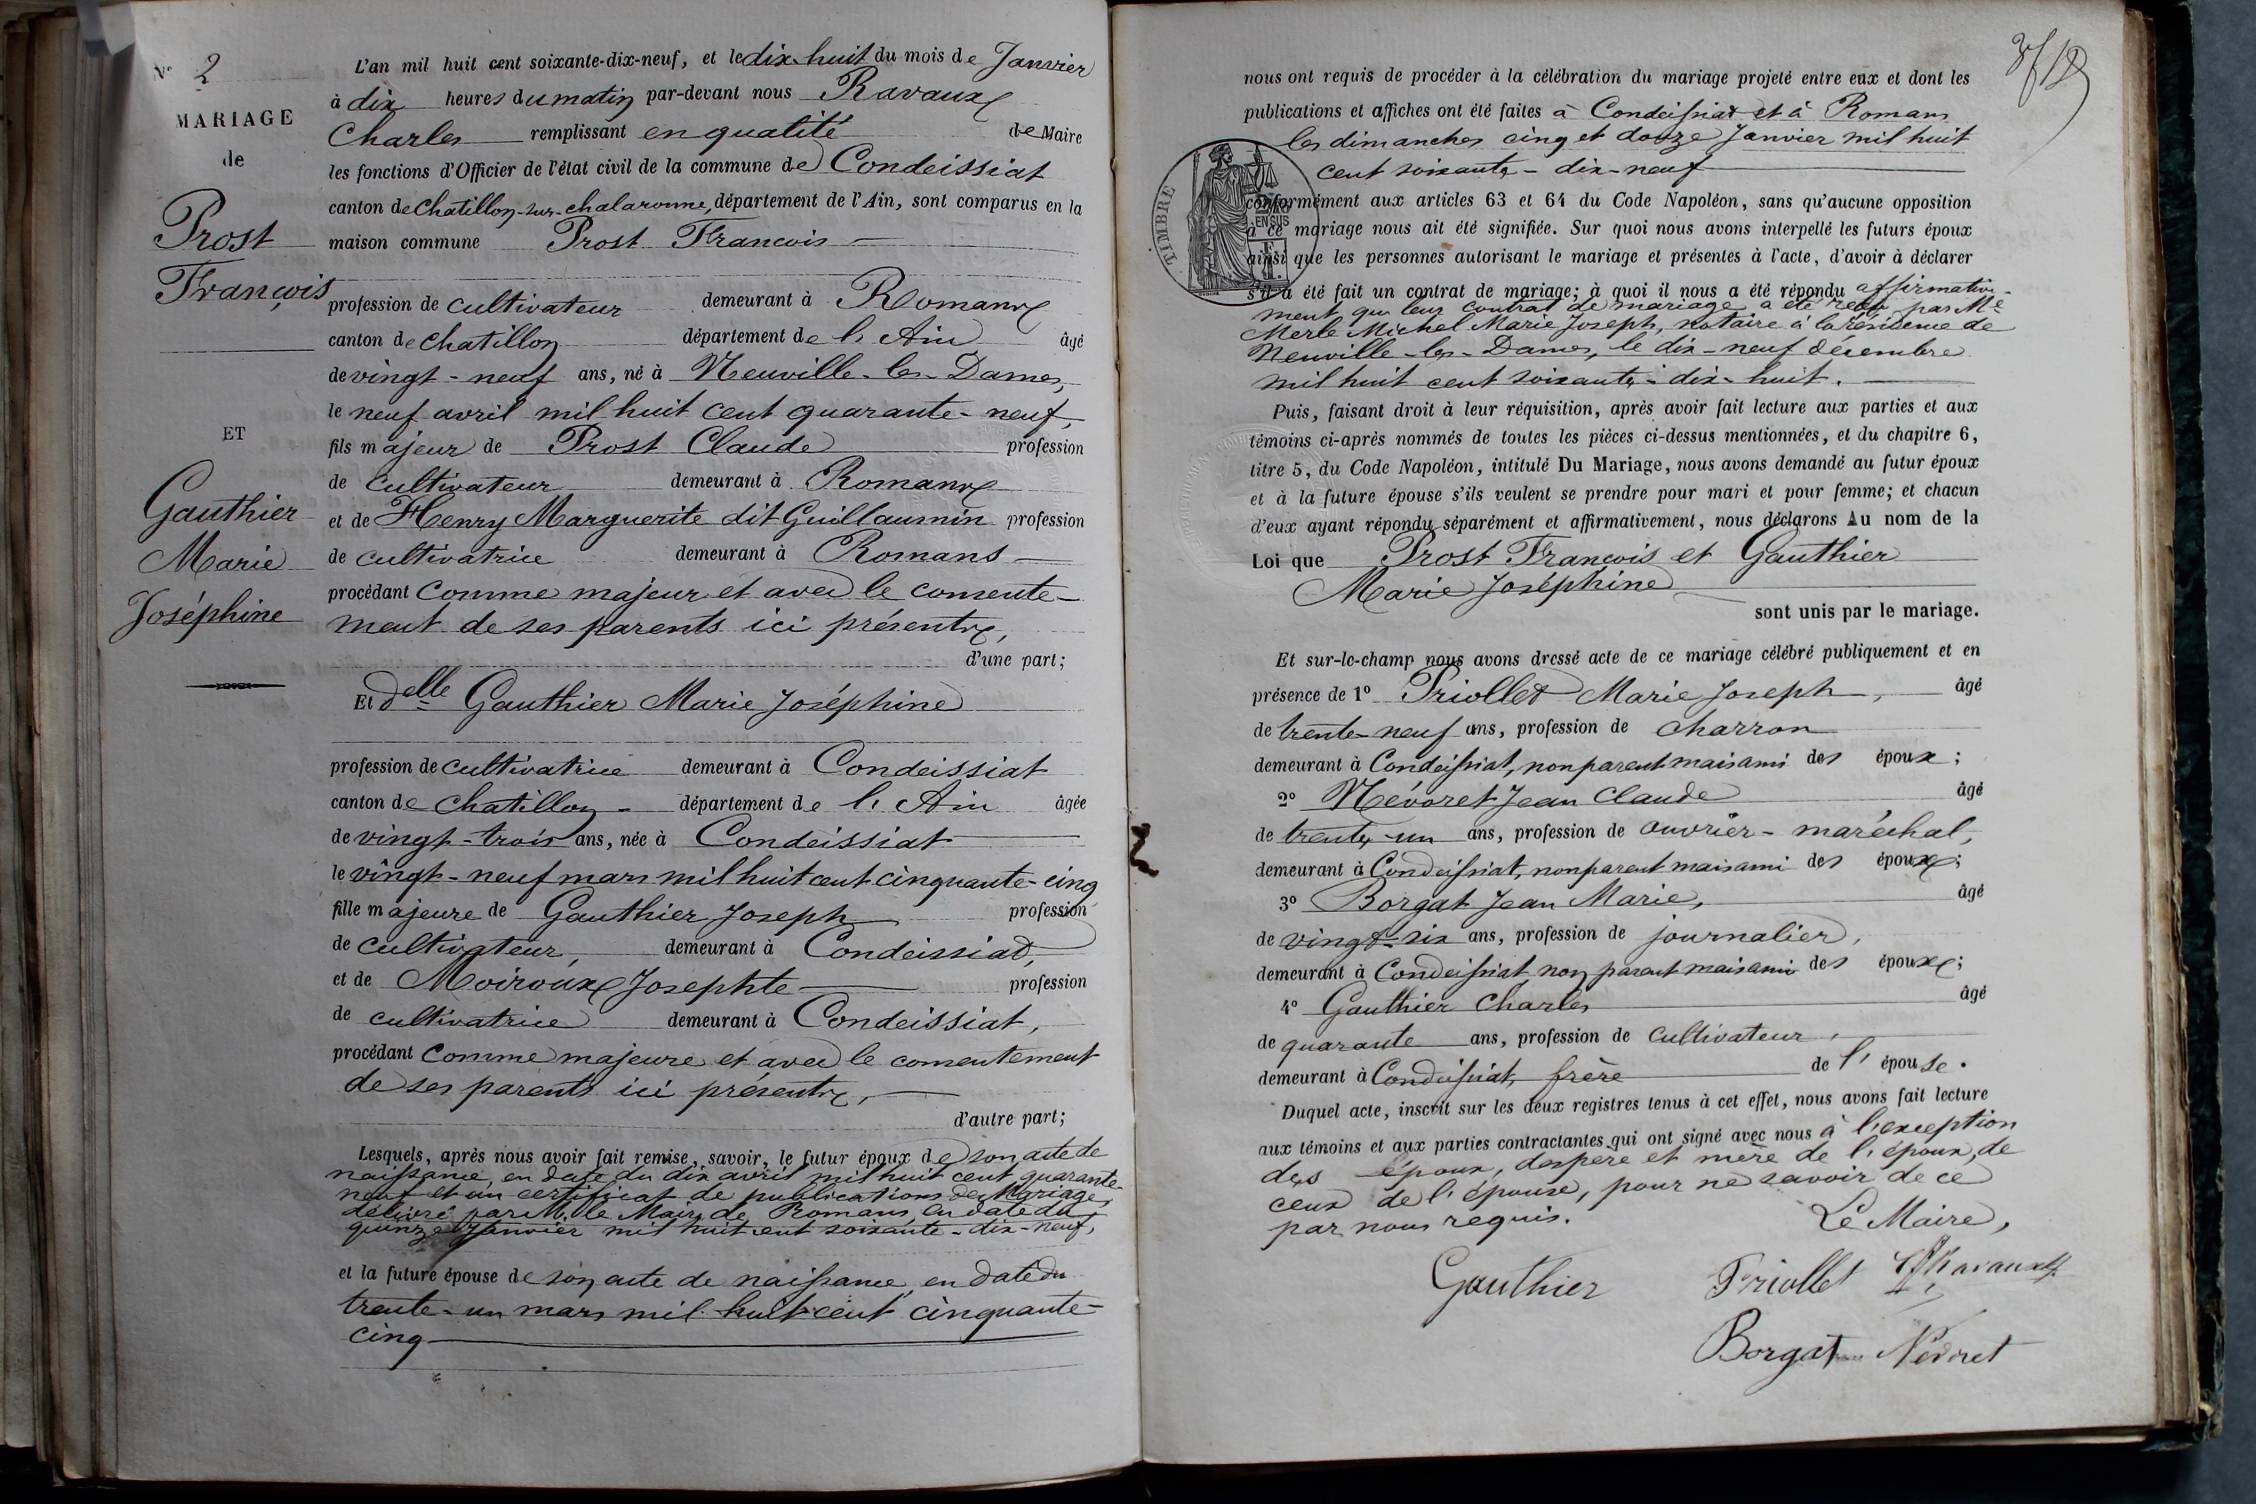 N° 2
MARIAGE
de
Prost
François
ET
Gauthier
Marie
Joséphine
L'an mil huit cent soixante-dix-neuf, et le dix-huit du mois de Janvier
à dix heures du matin par-devant nous Ravaux
Charles remplissant en qualité de Maire
les fonctions d'Officier de l'état civil de la commune de Condeissiat
canton de Chatillon-sur-chalaronne, département de l'Ain, sont comparus en la
maison commune Prost Francois
profession de cultivateur demeurant à Romans
canton de Chatillon département de l'Ain âgé
de vingt-neuf ans, né à Neuville-les-Dames,
le neuf avril mil huit cent quarante-neuf,
fils majeur de Prost Claude profession
de cultivateur demeurant à Romans
et de Henry Marguerite dit Guillaumin profession
de cultivatrice demeurant à Romans
procédant comme majeur et avec le consente-
ment de ses parents ici présents,
d'une part;
Et delle Gauthier Marie Joséphine
profession de cultivatrice demeurant à Condeissiat
canton de Chatillon département de l'Ain âgée
de vingt-trois ans, née à Condeissiat
le vingt-neuf mars mil huit cent cinquante-cinq
fille majeure de Gauthier Joseph profession
de cultivateur, demeurant à Condeissiat,
et de Moiroux Josephte profession
de cultivatrice demeurant à Condeissiat,
procédant comme majeure et avec le consentement
de ses parents ici présents,
d'autre part;
Lesquels, après nous avoir fait remise, savoir, le futur époux de son acte de
naissance, en date du dix avril mil huit cent quarante-
neuf et un certificat de publications de Mariage,
délivré par M. le Maire de Romans, en date du
quinze Janvier mil huit cent soixante-dix-neuf,
et la future épouse de son acte de naissance, en date du
trente-un mars mil huit cent cinquante-
cinq
nous ont requis de procéder à la célébration du mariage projeté entre eux et dont les
publications et affiches ont été faites à Condeissiat et à Romans
les dimanches cinq et douze Janvier mil huit
cent soixante-dix-neuf
TIMBRE
EN SUS
conformément aux articles 63 et 64 du Code Napoléon, sans qu'aucune opposition
à ce mariage nous ait été signifiée. Sur quoi nous avons interpellé les futurs époux
ainsi que les personnes autorisant le mariage et présentes à l'acte, d'avoir à déclarer
s'il a été fait un contrat de mariage; à quoi il nous a été répondu affirmative-
ment que leur contrat de mariage a été reçu par Me
Merle Michel Marie Joseph, notaire à la résidence de
Neuville-les-Dames, le dix-neuf décembre
mil huit cent soixante-dix-huit.
Puis, faisant droit à leur réquisition, après avoir fait lecture aux parties et aux
témoins ci-après nommés de toutes les pièces ci-dessus mentionnées, et du chapitre 6,
titre 5, du Code Napoléon, intitulé Du Mariage, nous avons demandé au futur époux
et à la future épouse s'ils veulent se prendre pour mari et pour femme; et chacun
d'eux ayant répondu séparément et affirmativement, nous déclarons Au nom de la
Loi que Prost François et Gauthier
Marie Joséphine
sont unis par le mariage.
Et sur-le-champ nous avons dressé acte de ce mariage célébré publiquement et en
présence de 1° Priollet Marie Joseph, âgé
de trente-neuf ans, profession de charron
demeurant à Condeissiat, non parent mais ami des époux;
2° Névoret Jean Claude âgé
de trente-un ans, profession de ouvrier-maréchal,
demeurant à Condeissiat, non parent mais ami des époux;
3° Borgat Jean Marie, âgé
de vingt-six ans, profession de journalier,
demeurant à Condeissiat, non parent mais ami des époux;
4° Gauthier Charles âgé
de quarante ans, profession de cultivateur,
demeurant à Condeissiat, frère de l'épouse.
Duquel acte, inscrit sur les deux registres tenus à cet effet, nous avons fait lecture
aux témoins et aux parties contractantes qui ont signé avec nous à l'exception
des époux, des père et mère de l'époux, de
ceux de l'épouse, pour ne savoir de ce
par nous requis.
Le Maire,
Gauthier Priollet Ravaux
Borgat Névoret